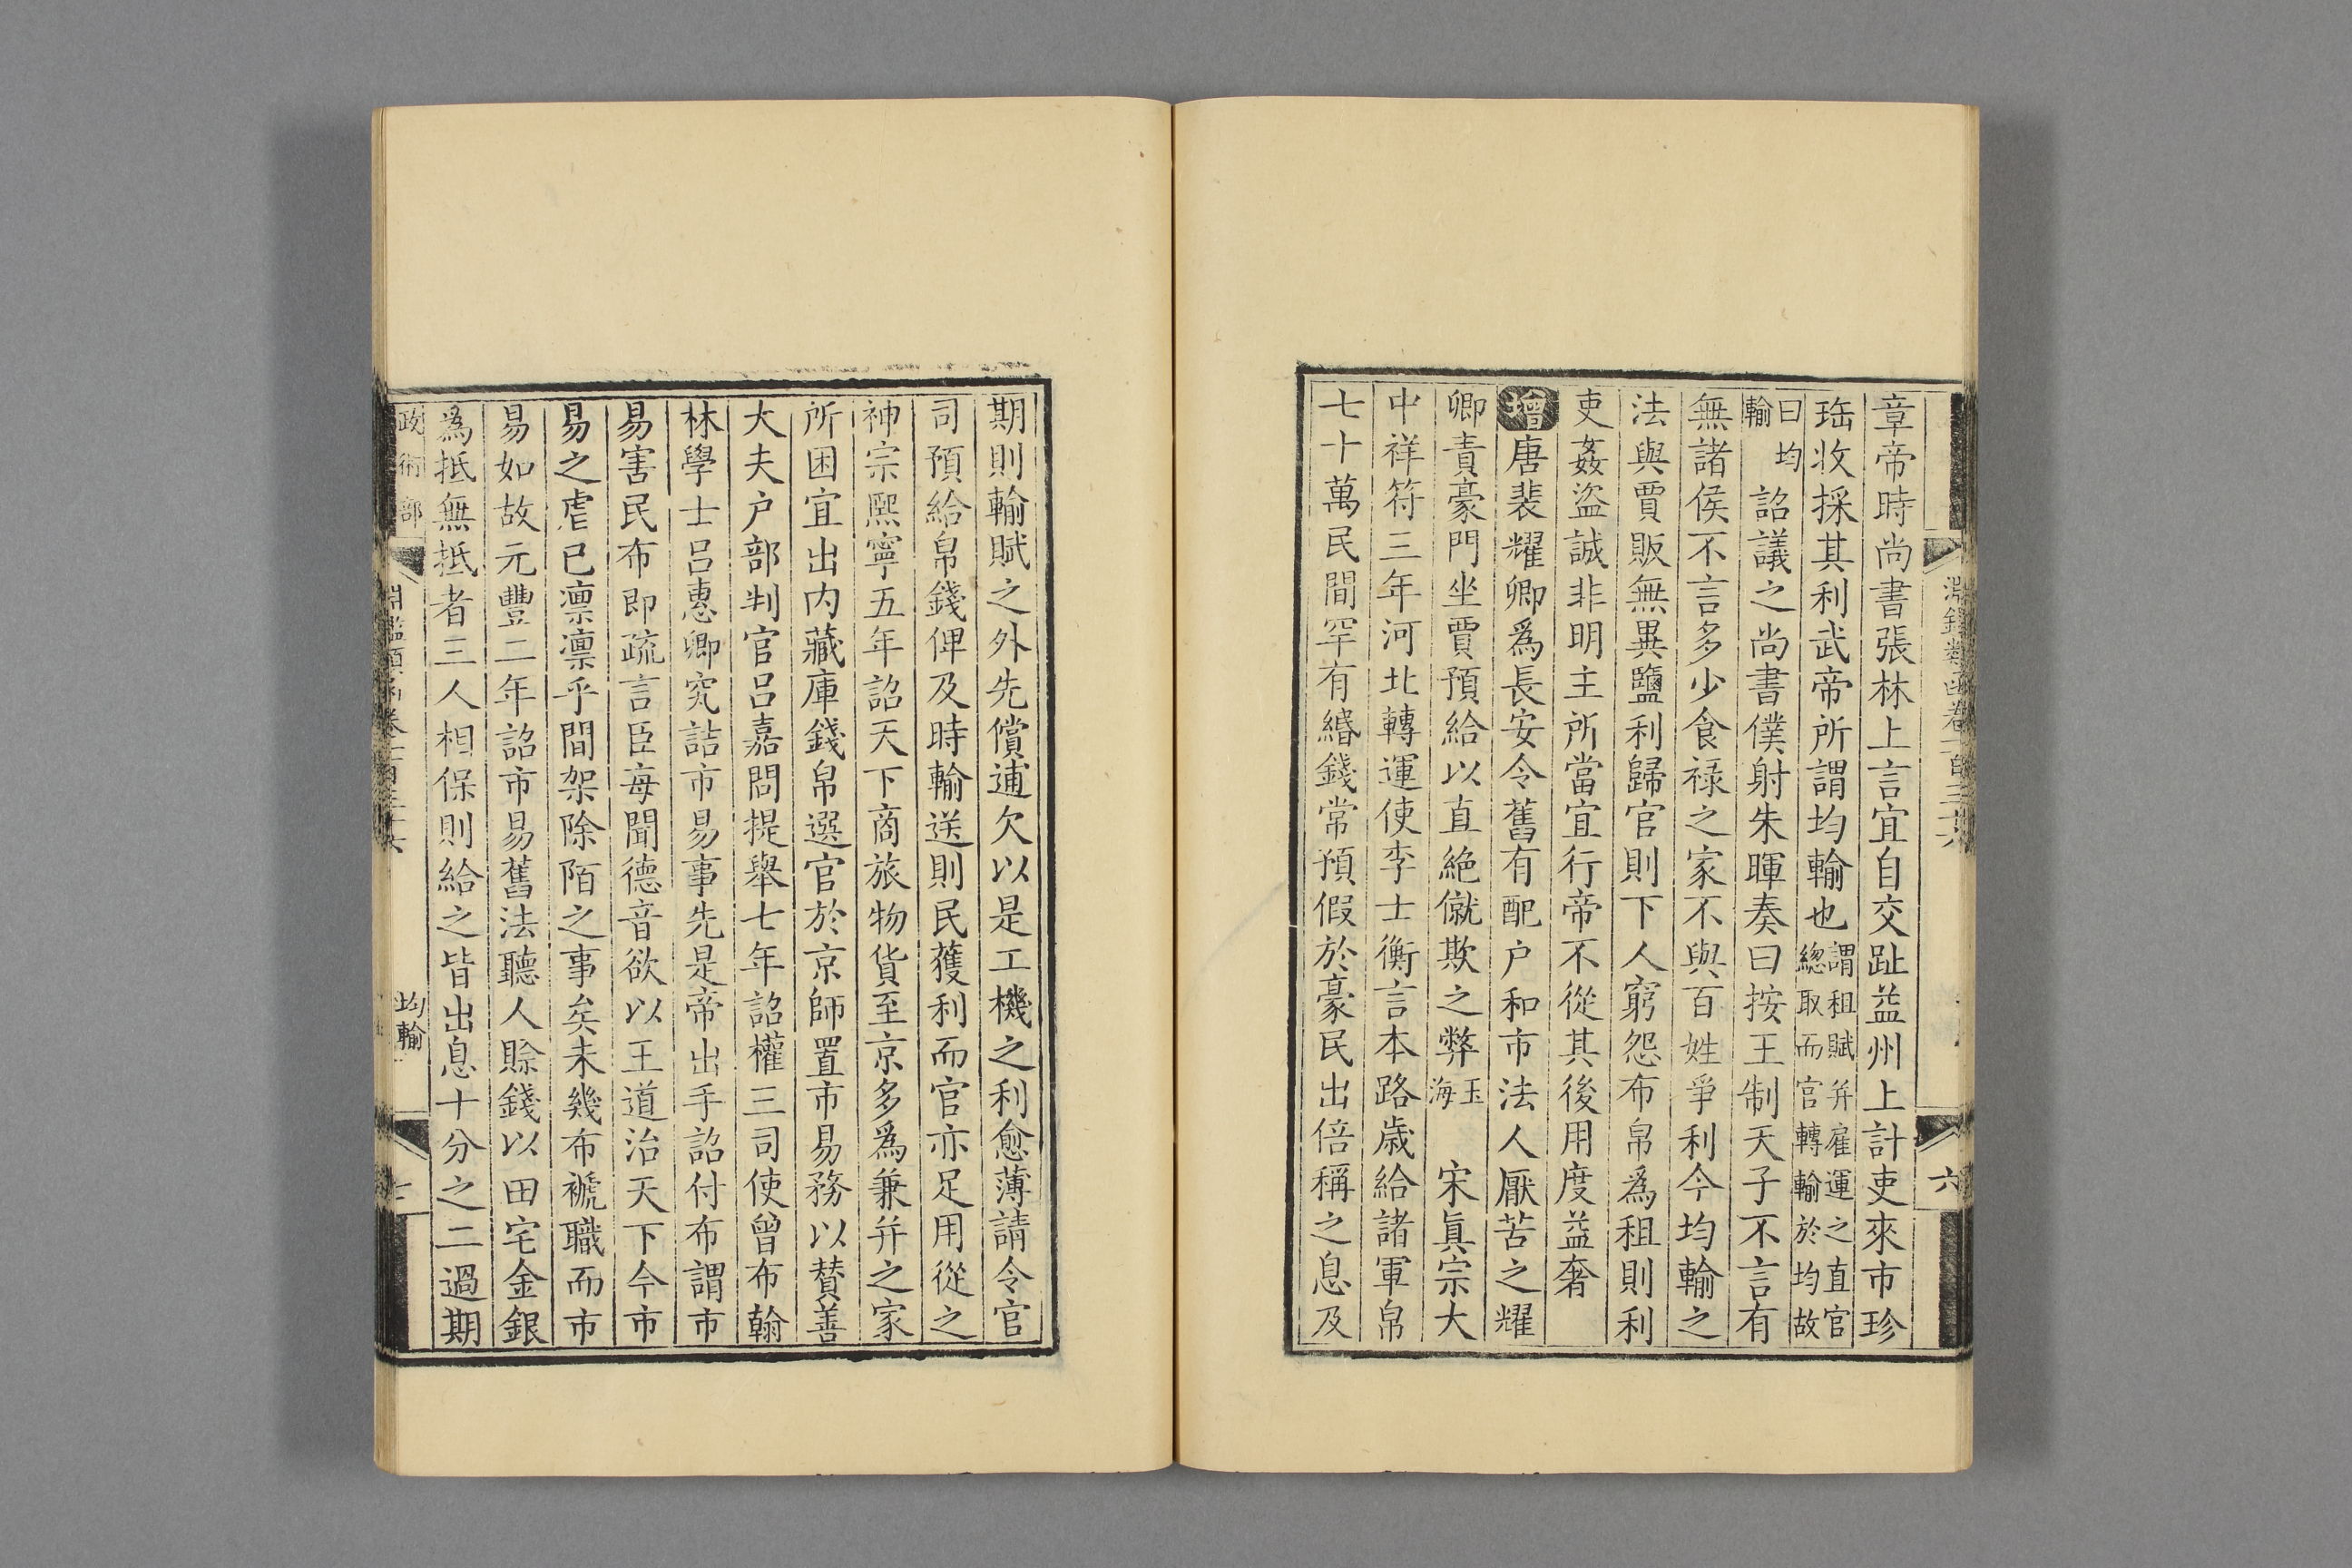 淵鑑類函卷一百三十六
六
章帝時尚書張林上言宜自交趾益州上計吏來市珍
珤收採其利武帝所謂均輸也謂租賦并雇運之直官總取而官轉輸於均故
曰均輸詔議之尚書僕射朱暉奏曰按王制天子不言有
無諸侯不言多少食禄之家不與百姓爭利今均輸之
法與賈販無異鹽利歸官則下人窮怨布帛爲租則利
吏姦盜誠非明主所當宜行帝不從其後用度益奢
增唐裴耀卿爲長安令舊有配户和市法人厭苦之耀
卿責豪門坐賈預給以直絶僦欺之弊玉海 宋眞宗大
中祥符三年河北轉運使李士衡言本路歲給諸軍帛
七十萬民間罕有緡錢常預假於豪民出倍稱之息及
期則輸賦之外先償逋欠以是工機之利愈薄請令官
司預給帛錢俾及時輸送則民獲利而官亦足用從之
神宗熙寧五年詔天下商旅物貨至京多爲兼并之家
所困宜出内藏庫錢帛選官於京師置市易務以贊善
大夫户部判官吕嘉問提舉七年詔權三司使曾布翰
林學士吕惠卿究詰市易事先是帝出手詔付布謂市
易害民布即疏言臣每聞德音欲以王道治天下今市
易之虐已凛凛乎間架除陌之事矣未幾布褫職而市
易如故元豐二年詔市易舊法聽人賒錢以田宅金銀
爲抵無抵者三人相保則給之皆出息十分之二過期
政術部
淵鑑類函卷一百三十六
均輸一
七